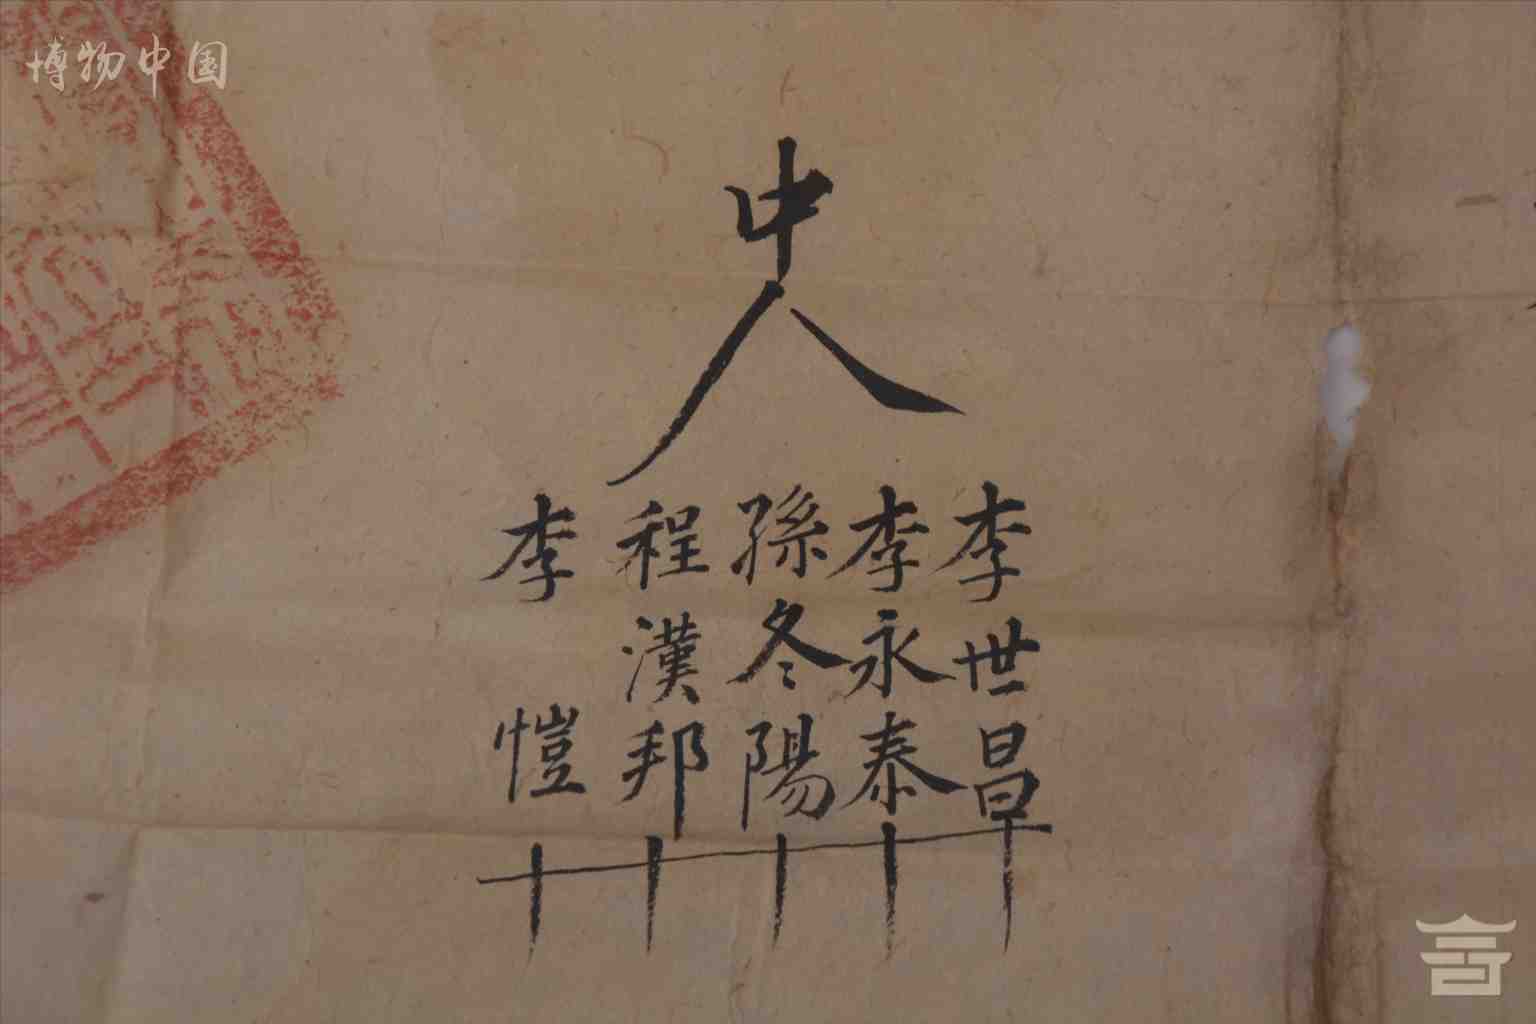 博物中国
中人
李世昌
李永泰
孫冬陽
程漢邦
李愷